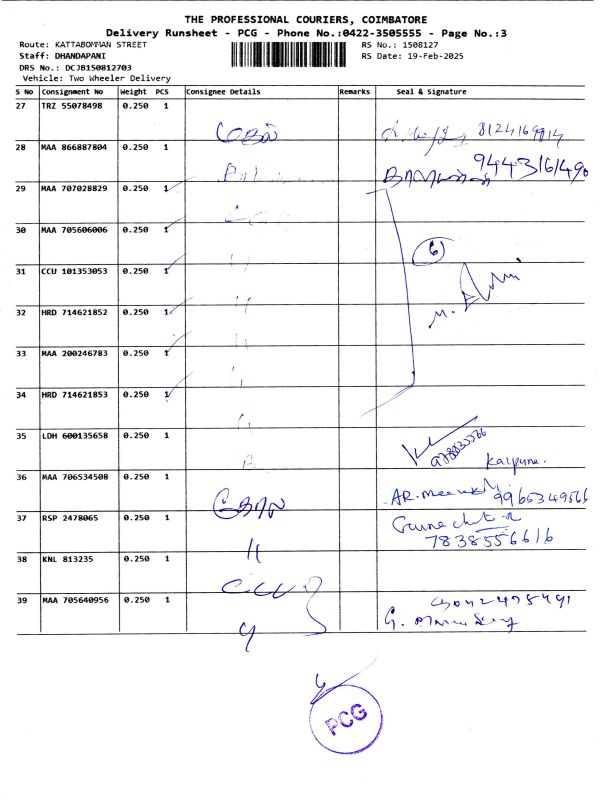 THE PROFESSIONAL COURIERS, COIMBATORE
Delivery Runsheet - PCG - Phone No.:0422-3505555 - Page No.:3
Route: KATTABOMMAN STREET RS No.: 1508127
Staff: DHANDAPANI RS Date: 19-Feb-2025
DRS No.: DCJB150812703
Vehicle: Two Wheeler Delivery
S No Consignment No Weight PCS Consignee Details Remarks Seal & Signature
27 TRZ 55078498 0.250 1
28 MAA 866887804 0.250 1
29 MAA 707028829 0.250 1
30 MAA 705606006 0.250 1
6
31 CCU 101353053 0.250 1
32 HRD 714621852 0.250 1
33 MAA 200246783 0.250 1
34 HRD 714621853 0.250 1
35 LDH 600135658 0.250 1
Kalpana.
36 MAA 706534508 0.250 1
37 RSP 2478065 0.250 1
7838556616
38 KNL 813235 0.250 1
39 MAA 705640956 0.250 1
PCG